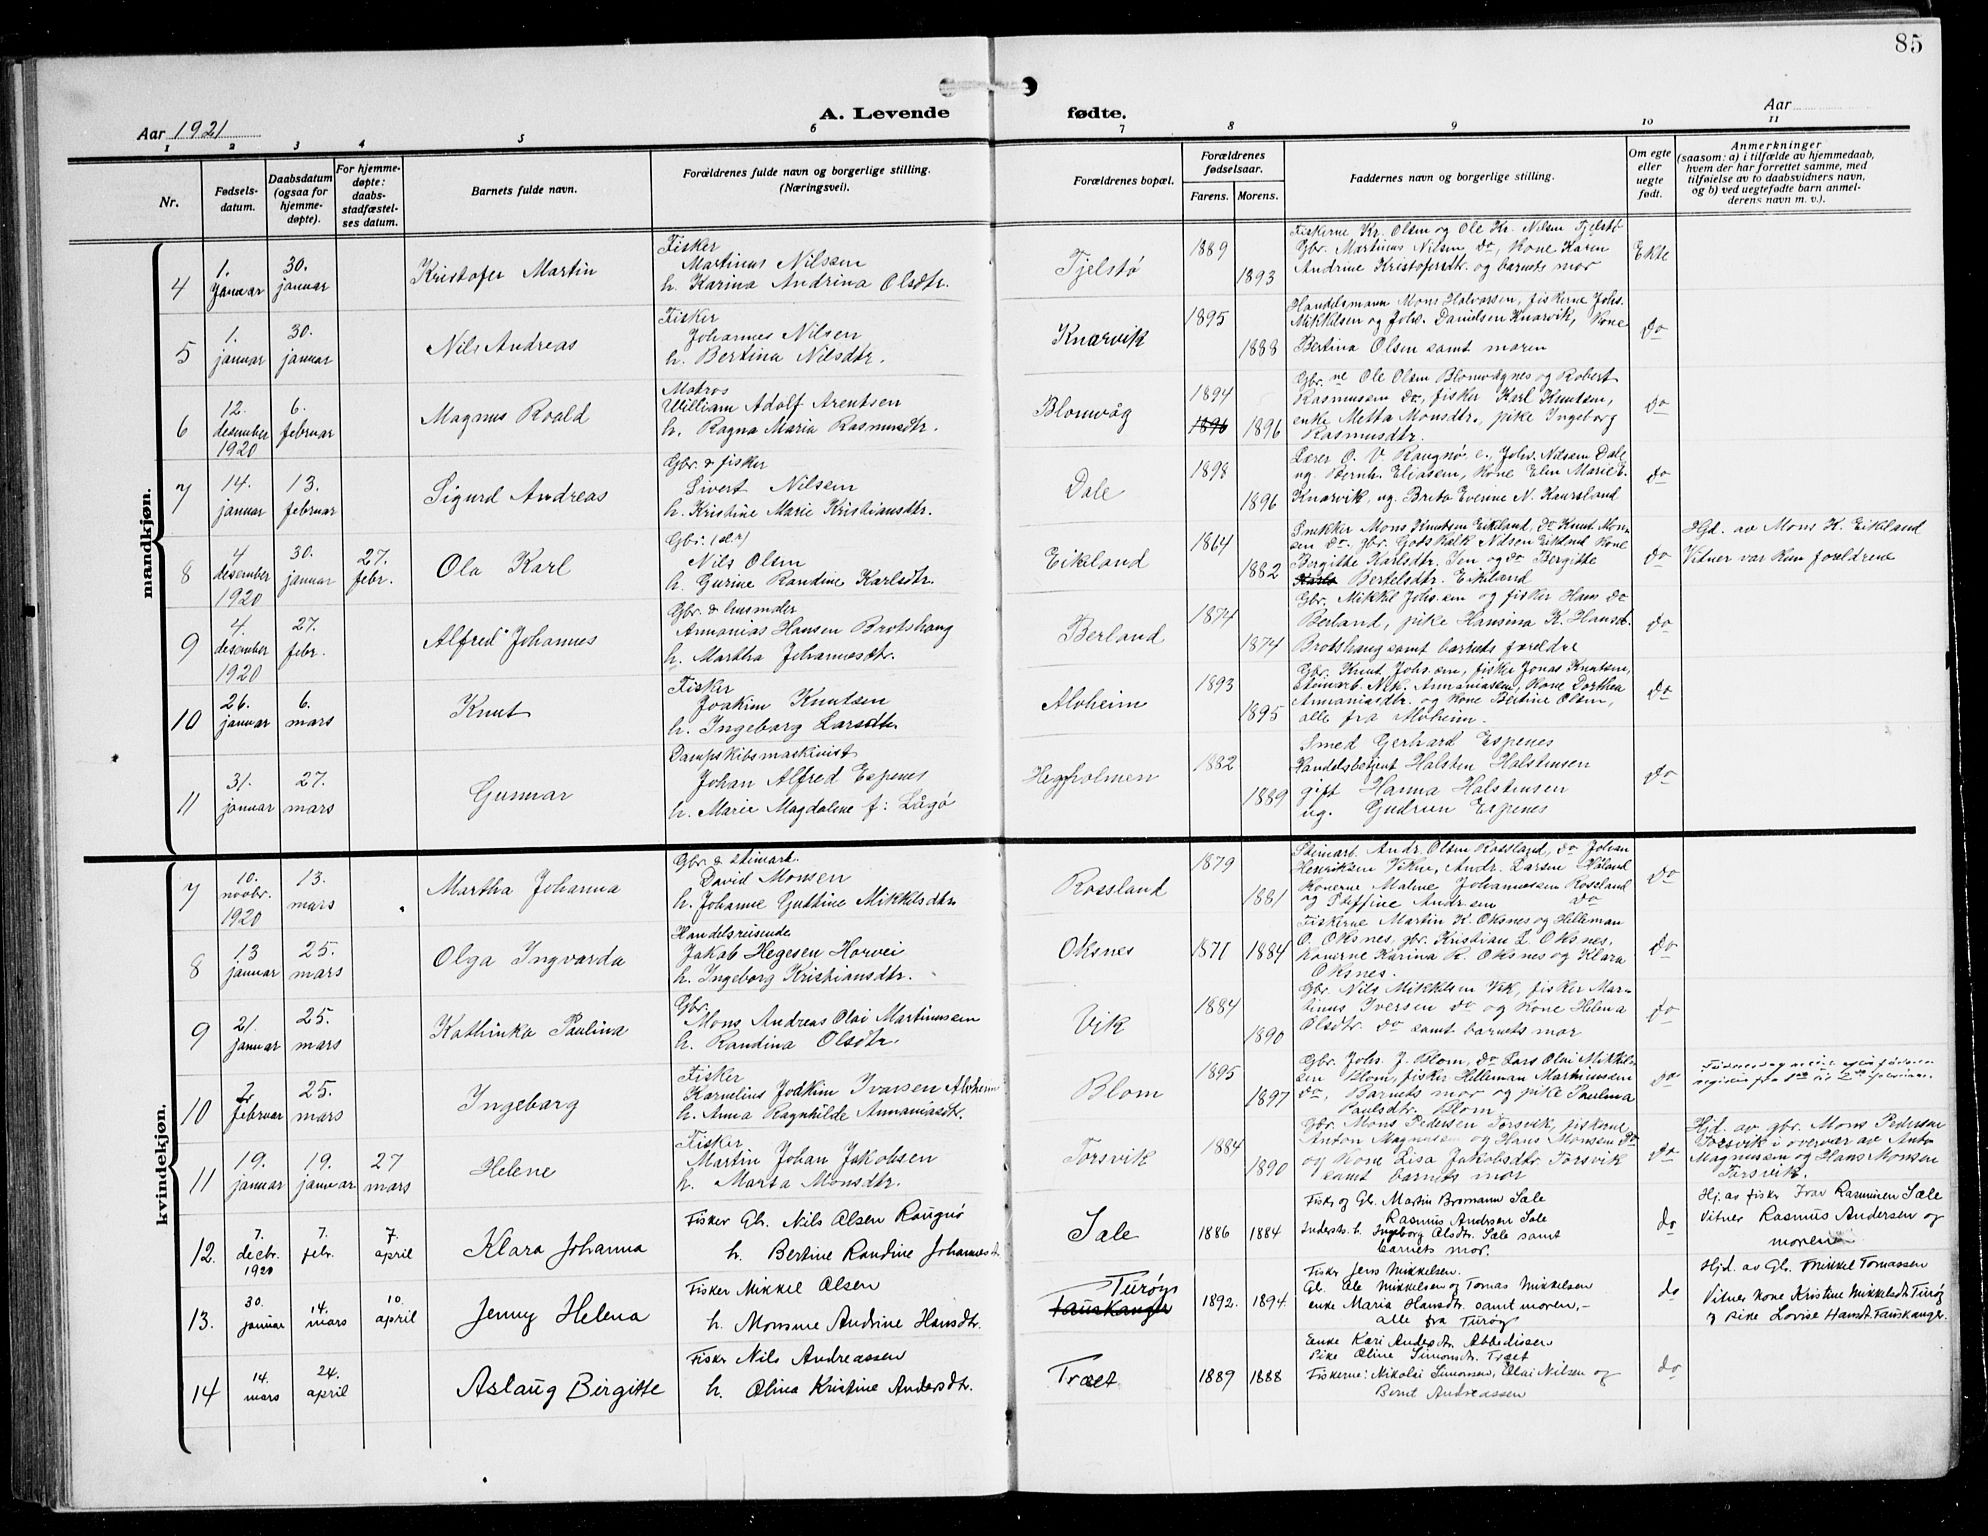 85
A. Levende fødte.
Aar 1921
Aar
1 2 3 4 5 6 7 8 9 10 11
Nr.
Fødsels-
datum.
Daabsdatum
(ogsaa for
hjemme-
døpte).
For hjemme-
døpte:
daabs-
stadfæstel-
ses datum.
Barnets fulde navn.
Forældrenes fulde navn og borgerlige stilling.
(Næringsvei).
Forældrenes bopæl.
Forældrenes
fødselsaar.
Farens. Morens.
Faddernes navn og borgerlige stilling.
Om egte
eller
uegte
født.
Anmerkninger
(saasom: a) i tilfælde av hjemmedaab,
hvem der har forrettet samme, med
tilføielse av to daabsvidners navn,
og b) ved uegtefødte barn anmel-
derens navn m. v.).
mandkjøn.
4
1.
januar
30.
januar
Kristofer Martin
Fisker
Martinus Nilssen
h. Karina Andrina Olsdtr.
Tjelstø
1889
1893
Fiskerne Kr. Olsen og Ole Kr. Nilsen Tjelstø
Gbr. Martinus Nilsen do, kone Karen
Andrine Kristofersdtr. og barnets mor
Ekte
5
1.
januar
30.
januar
Nils Andreas
Fisker
Johannes Nilsen
h. Bertina Nilsdtr.
Knarvik
1895
1888
Handelsmann Mons Halvorsen, fiskerne Johs.
Mikkelsen og Johs. Danielsen Knarvik, kone
Bertina Olsen samt moren
do
6
12.
desember
1920
6.
februar
Magnus Roald
Matros
William Adolf Arentsen
h. Ragna Maria Rasmusdtr.
Blomvåg
1894
1896 1896
Gbr.ne Ole Olsen Blomvågnes og Robert
Rasmusen do, fisker Karl Knutsen,
enke Metta Monsdtr., pike Ingeborg
Rasmusdtr.
do
7
14.
januar
13.
februar
Sigurd Andreas
Gbr. & fisker
Sivert Nilsen
h. Kristine Marie Kristiansdtr.
Dale
1898
1896
Lærer O. V. Raugnø, e. Johs. Nilsen Dale
ug. Bernh. Eliasen, kone Elen Marie E.
Knarvik, ug. Brita Everine N. Kaursland
do
8
4
desember
1920
30.
januar
27.
febr.
Ola Karl
Gbr.
Nils Olsen
h. Gurine Randine Karlsdtr.
Eikeland
1864
1882
Snekker Mons Knutsen Eikeland, do Knut Mon-
sen do, gbr. Godskalk Nilsen Eikland kone
Bergitte Karlsdtr. og do Bergitte
Bertelsdtr. Eikland
do
Hjd. av Mons K. Eikeland
Vitner var kun foreldrene
9
4.
desember
1920
27.
febr.
Alfred Johannes
Gbr. & husmoler
Annanias Hansen Brotshaug
h. Martha Johannesdtr.
Berland
1874
1874
Gbr. Mikkel Johs.sen og fisker Hans do
Berland, pike Hansina K. Hansdt.
Brotshaug samt barnets foreldre
do
10
26.
januar
6.
mars
Knut
Fisker
Joakim Knutsen
h. Ingeborg Larsdtr.
Alvheim
1893
1895
Gbr. Knut Johs.sen, fisker Jonas Knutsen,
Steinarb. Nik. Annaniasen, kone Dorthea
Annaniasdtr. og kone Bertine Olsen,
alle fra Alvheim.
do
11
31.
januar
27.
mars
Gunnar
Dampskibsmaskinist
Johan Alfred Espenes
h. Marie Magdalene f: Lågø
Hegholmen
1882
1889
Smed Gerhard Espenes
Handelsbetjent Halsten Halstensen
gift Hanna Halstensen
ug. Gudrun Espenes
do
kvindekjøn.
7
10.
novbr.
1920
13.
mars
Martha Johanna
Gbr. & steinarb.
David Monsen
h. Johanne Guttine Mikkelsdtr.
Rossland
1879
1881
Steinarb. Andr. Olsen Rossland, do Johan
Henriksen Vikne, Andr. Larsen Håland
Konerne Malene Johannessen Rosland
og Steffine Andr.sen do
do
8
13
januar
25.
mars
Olga Ingvarda
Handelsreisende
Jakob Hegesen Horvei
h. Ingeborg Kristiansdtr.
Oksnes
1871 1884
Fiskerne Martin K. Oksnes og Helleman
O. Oksnes, gbr. Kristian L. Oksnes,
Konerne Karina R. Oksnes og Klara
Oksnes.
do
9
21.
januar
25.
mars
Kathinka Paulina
Gbr.
Mons Andreas Olai Martinussen
h. Randina Olsdtr.
Vik
1884
1890
Gbr. Nils Mikkelsen Vik, fisker Mar-
tinus Iversen do og kone Helena
Olsdtr. do samt barnets mor
do
10
2
februar
25.
mars
Ingeborg
Fisker
Kornelius Joakim Ivarsen Alvheim
h. Anna Ragnhilde Annaniasdtr.
Blom
1895
1897
Gbr. Johs. J. Blom, do Lars Olai Mikkel-
sen Blom, fisker Helleman Martinussen
do, Barnets mor og pike Paulina
Paulsdtr. Blom
do
11
19.
januar
19.
januar
27
mars
Helene
Fisker
Martin Johan Jakobsen
h. Marta Monsdtr.
Torsvik
1884
1890
Gbr. Mons Pedersen Torsvik, fiskerne
Anton Magnussen og Hans Monssen do
og kone Lisa Jakobsdtr. Torsvik
samt barnets mor
do
Hjd. av gbr. Mons Pedersen
Torsvik i overvær av Anton
Magnussen og Hans Monsen
Torsvik.
12.
7.
decbr.
1920
7.
febr.
7.
april
Klara Johanna
Fisker Gbr. Nils Olsen Raugnø
h. Bertine Randine Johannesdt.
Sæle
1886 1884
Fisk. og Gbr. Martin Bromann Sæle
Rasmus Andersen Sæle
Inderstr. h. Ingeborg Olsdtr. Sæle samt
barnets mor.
do
Hj. av fisker Ivar Rasmusen Sæle
Vitner Rasmus Andersen og
moren
13.
30.
januar
14.
mars
10.
april
Jenny Helena
Fisker Mikkel Olsen
h. Monsine Andrine Hansdtr.
Turøy
Fauskanger
1892. 1894.
Fisker Jens Mikkelsen.
Gbr. Ole Mikkelsen og Tomas Mikkelsen
enke Maria Hansdtr. samt moren, -
alle fra Turøy
do
Hjd. av Gbr. Mikkel Tomassen
Vitner kone Kristine Mikkelsdt. Turøy
og pike Lovise Hansdt. Fauskanger.
14
14.
mars
24.
april
Aslaug Birgitte
Fisker Nils Andreassen
h. Olina Kristine Andersdtr.
Træet
1889 1888
Enke Kari Andersdtr. Abbedissen
Pike Oline Simonsdtr. Træet
Fiskerne: Nikolai Simonsen, Olai Nilsen og
Bernt Andreassen
do